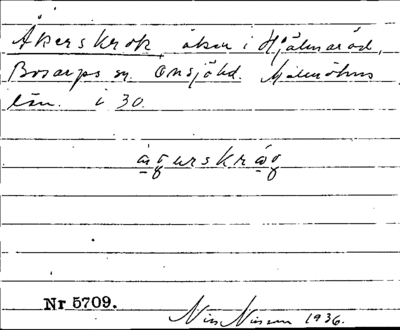 Åkerskrok, åker i Hjälmaröd,
Bosarps sn. Onsjö hd. Malmöhus
län. i 30.
ågurskråg
Nr 5709.
Nils Nilsson 1936.